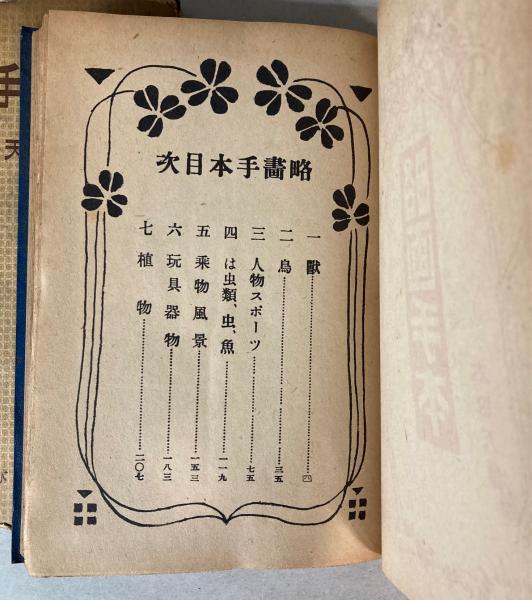 略畫手本目次
一 獸 四
二 鳥 三五
三 人物スポーツ 七五
四 は虫類、虫、魚 一一九
五 乘物風景 一五三
六 玩具器物 一八三
七 植物 二〇七
手
天